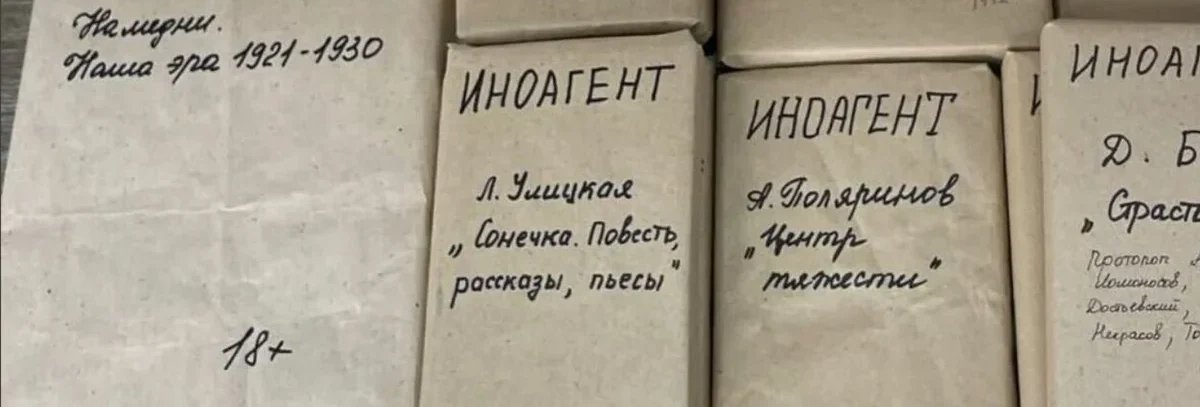 Намедни.
Наша эра 1921-1930
18+
ИНОАГЕНТ
Л. Улицкая
„Сонечка. Повесть,
рассказы, пьесы"
ИНОАГЕНТ
А. Поляринов
„Центр
тяжести"
ИНОАГ
Д. Б
„Страст
Протопоп А
Ломоносов,
Достоевский,
Некрасов, То